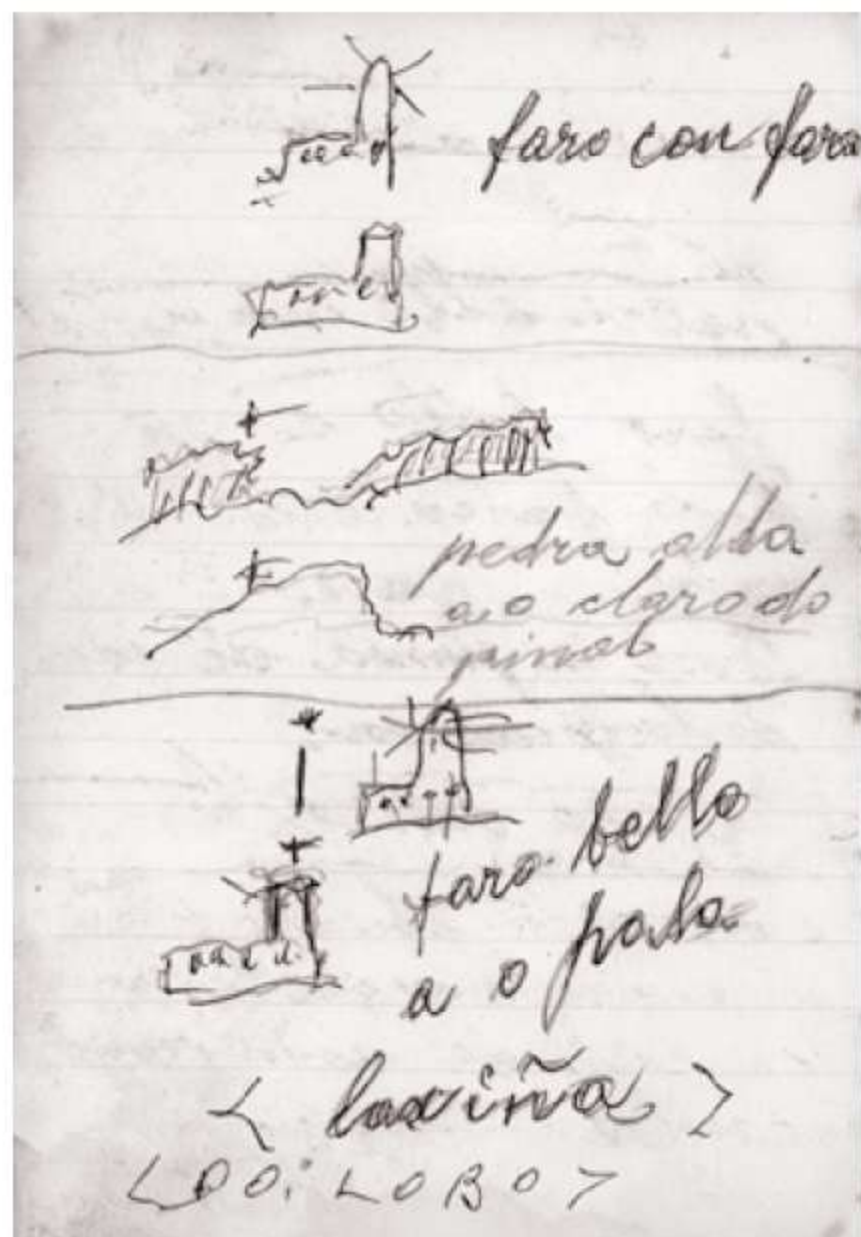 faro con faro
pedra alta
a o claro do
pinal
faro bello
a o palo
< laxiña >
< DO: LOBO >